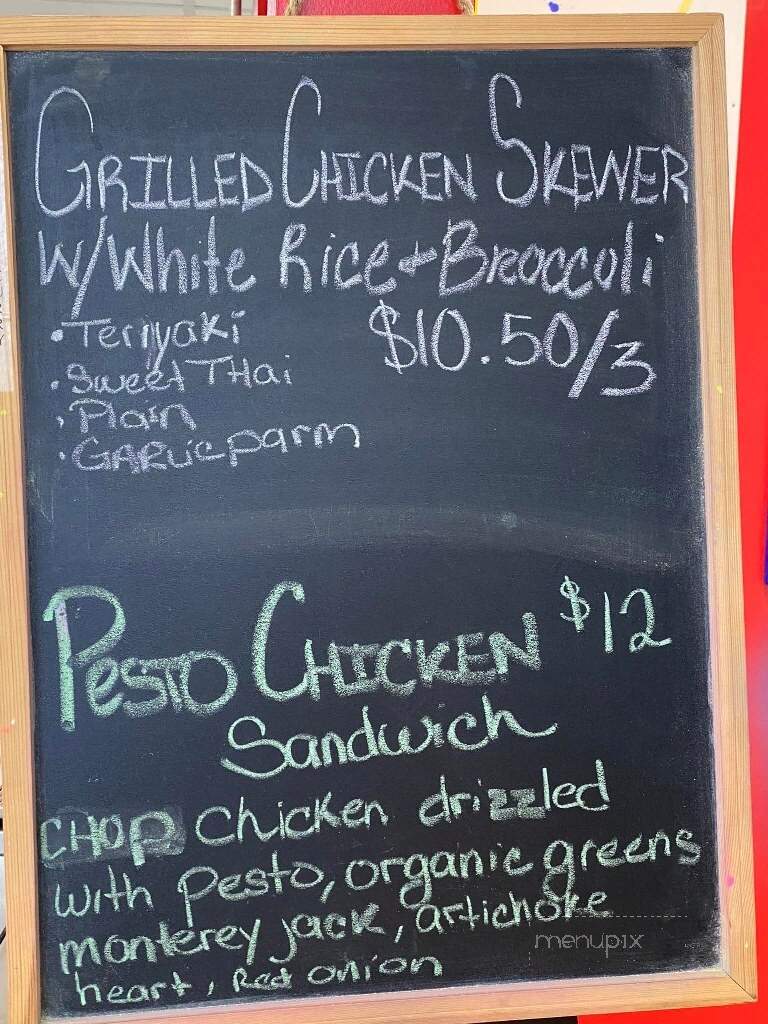 GRILLED CHICKEN SKEWER
W/White Rice + Broccoli
• Teriyaki
$10.50/3
• Sweet THai
• Plain
• GARlic parm
Pesto CHICKEN $12
Sandwich
CHOP chicken drizzled
with pesto, organic greens
monterey jack, artichoke
menupix
heart, Red onion